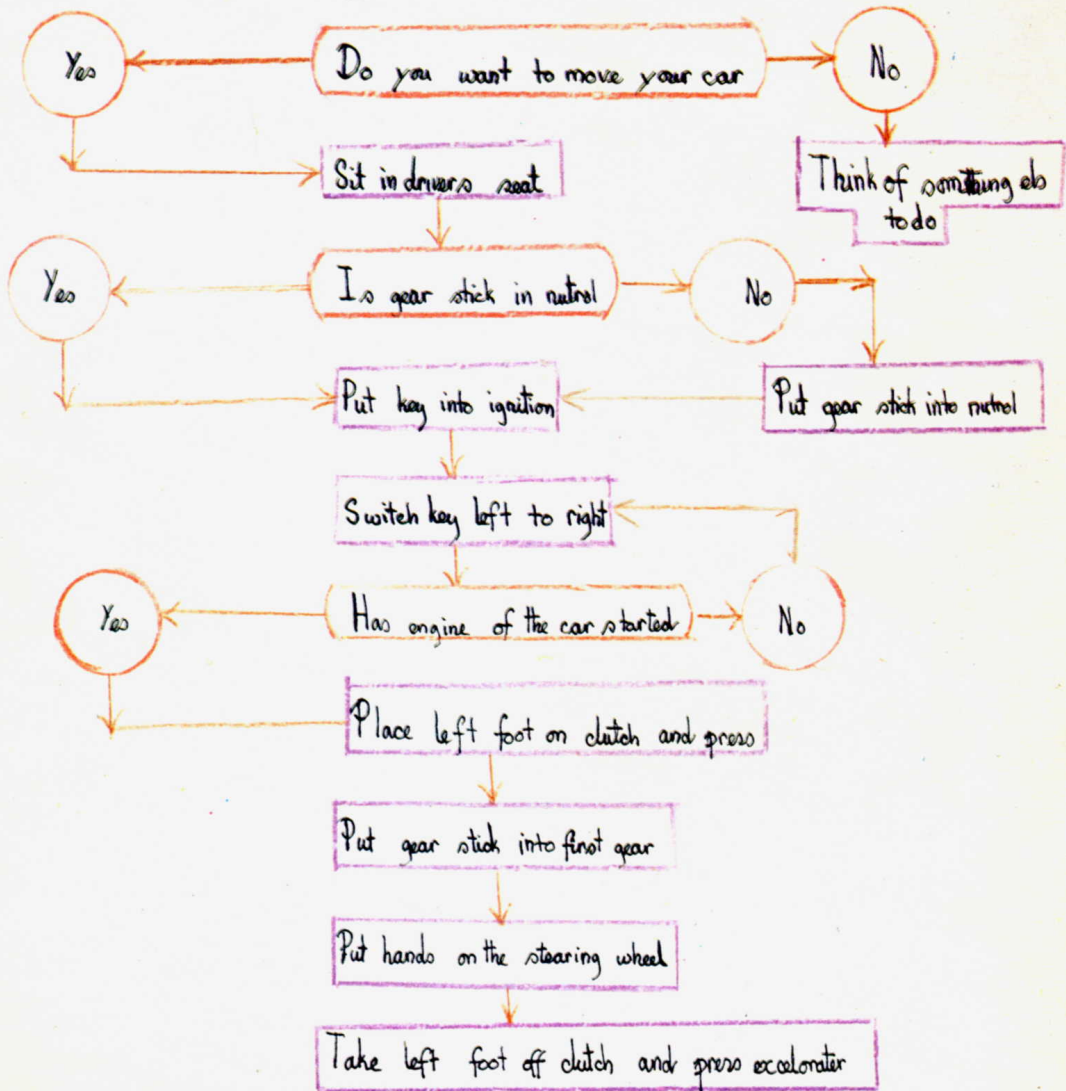 Yes
Do you want to move your car
No
Sit in drivers seat
Think of somthing els
to do
Yes
Is gear stick in nutrol
No
Put key into ignition
Put gear stick into nutrol
Switch key left to right
Yes
Has engine of the car started
No
Place left foot on clutch and press
Put gear stick into first gear
Put hands on the stearing wheel
Take left foot off clutch and press excelorater